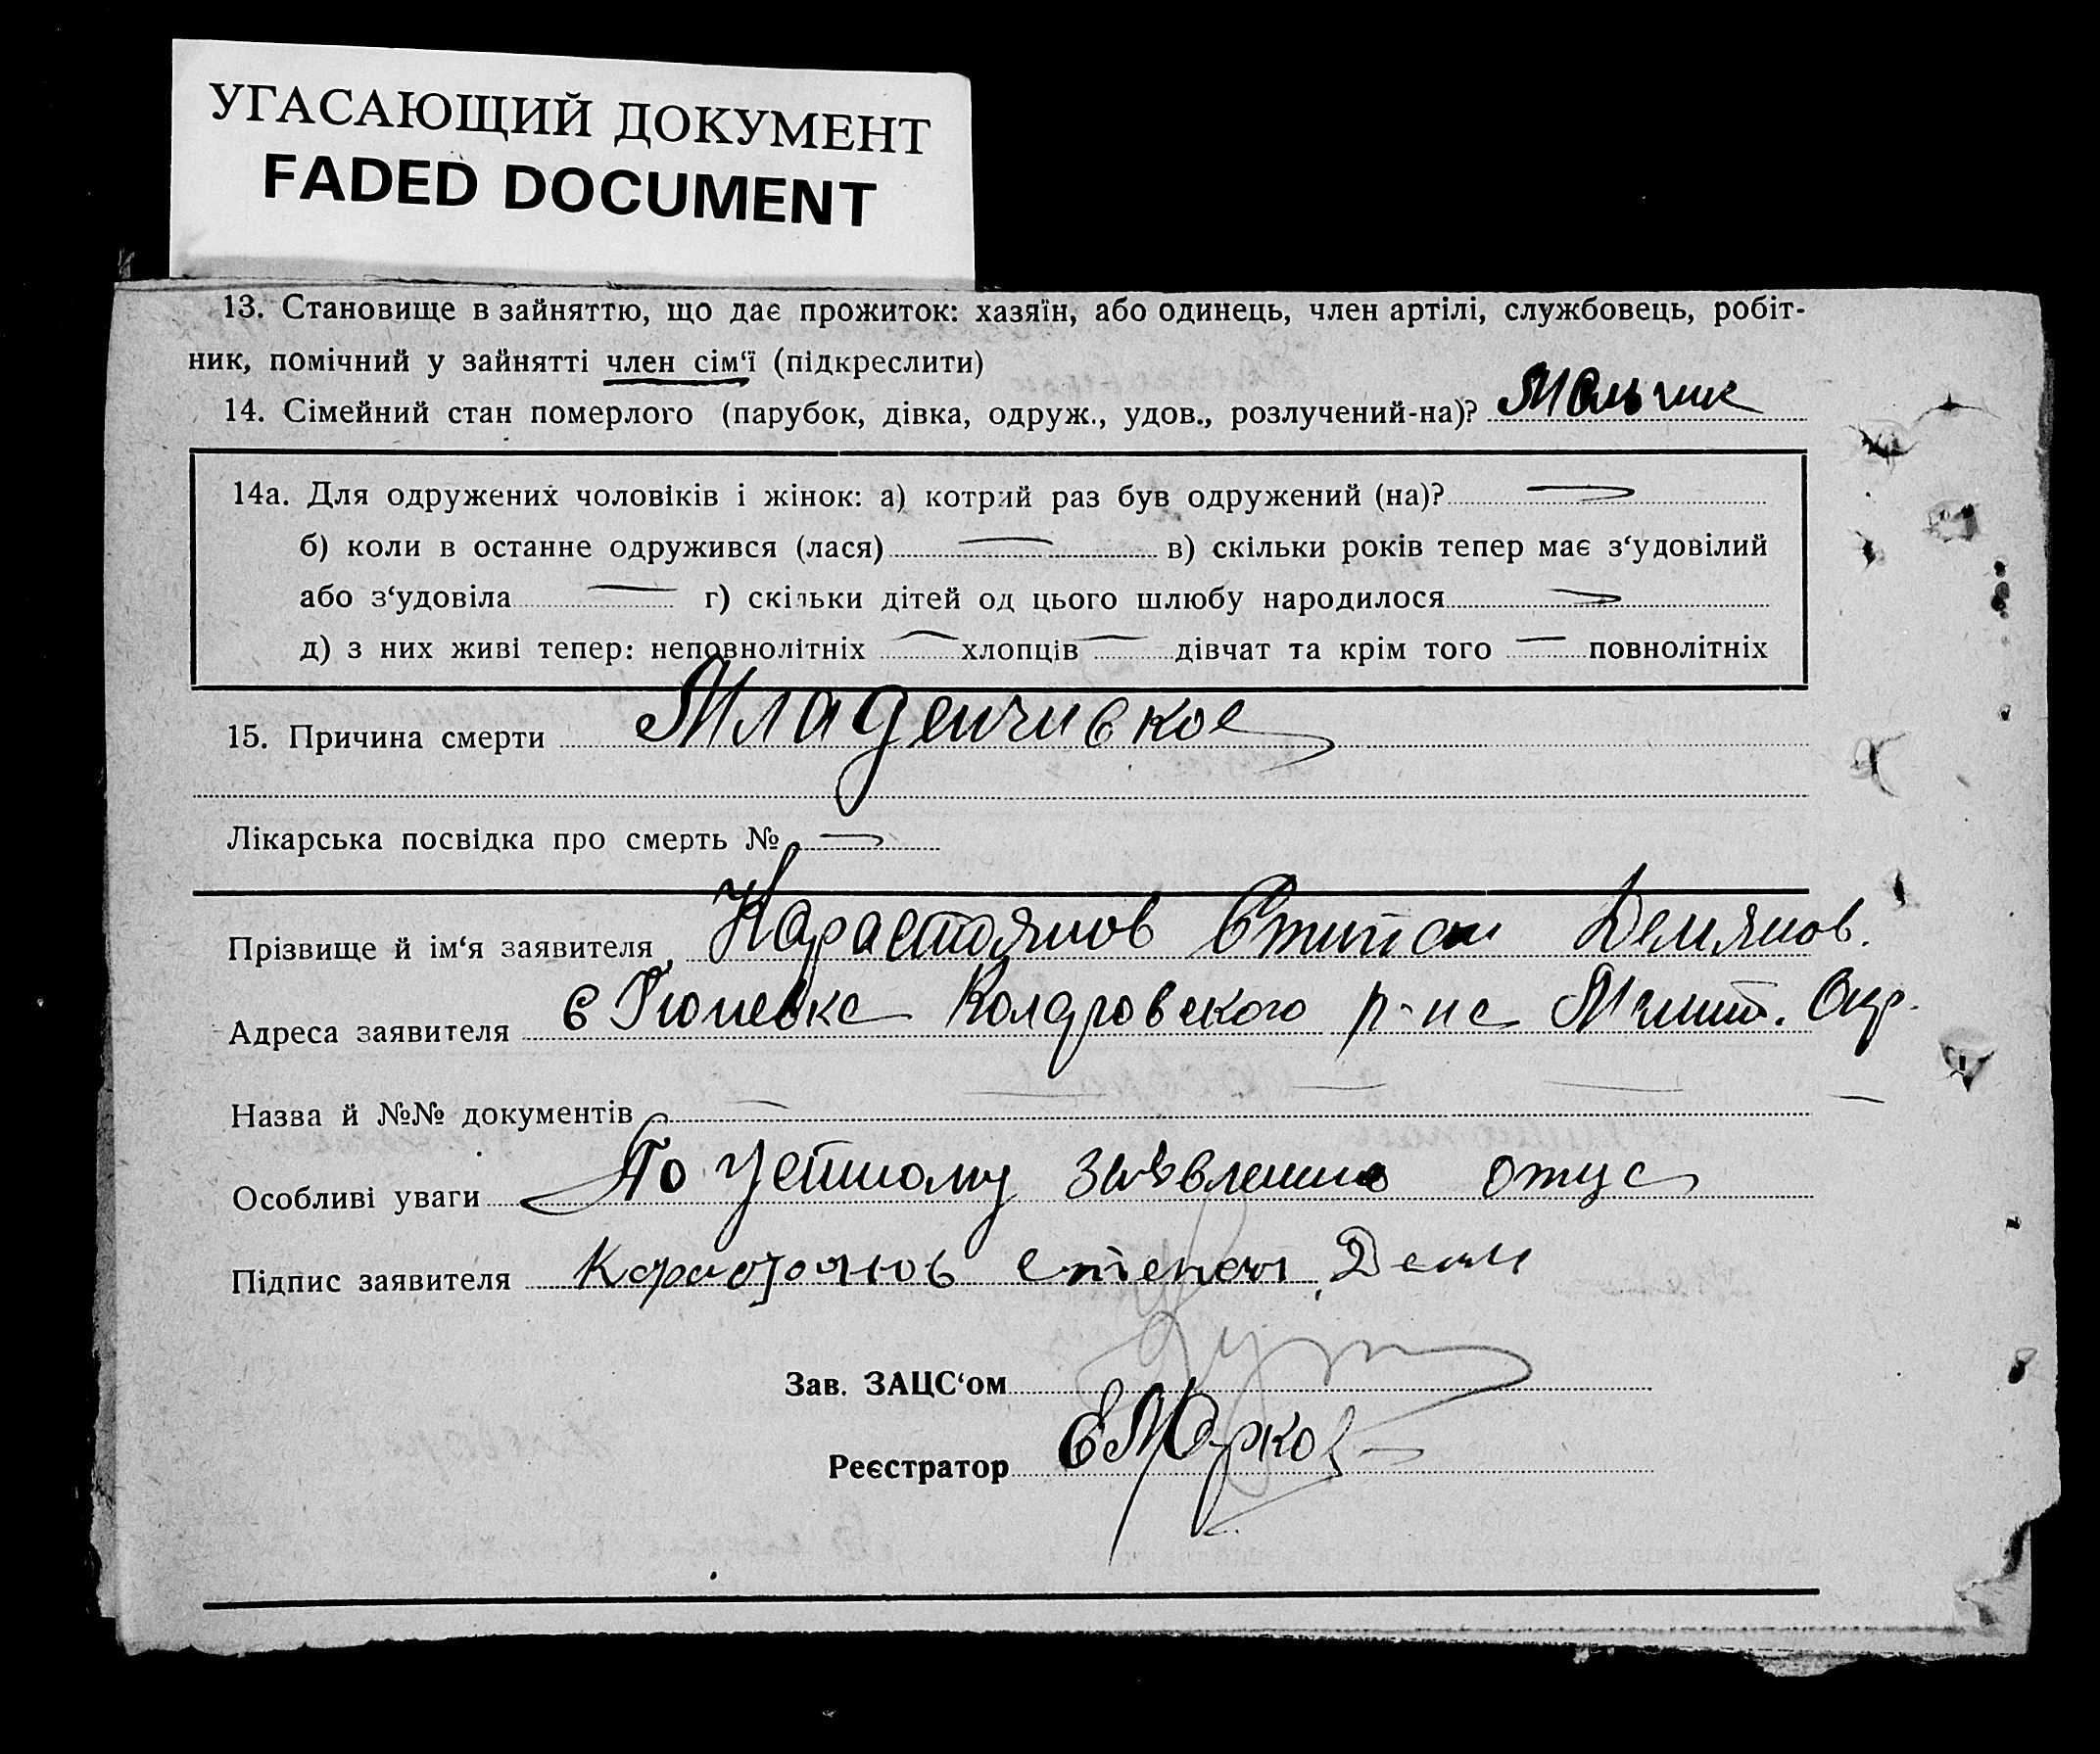 УГАСАЮЩИЙ ДОКУМЕНТ
FADED DOCUMENT
13. Становище в зайняттю, що дає прожиток: хазяїн, або одинець, член артілі, службовець, робіт-
ник, помічний у зайнятті член сім‘ї (підкреслити)
14. Сімейний стан померлого (парубок, дівка, одруж., удов., розлучений-на)? Мальчик
14а. Для одружених чоловіків і жінок: а) котрий раз був одружений (на)?
б) коли в останне одружився (лася) в) скільки років тепер має з‘удовілий
або з‘удовіла г) скільки дітей од цього шлюбу народилося
д) з них живі тепер: неповнолітніх хлопців дівчат та крім того повнолітніх
15. Причина смерти Младенчиское
Лікарська посвідка про смерть №
Прізвище й ім‘я заявителя Карастоянов Стипан Демянов.
Адреса заявителя с Гюневка р-на Мелит. Окр.
Назва й №№ документів
Особливі уваги По устному заявлению отца
Підпис заявителя Карастоянов Степан Демя
Зав. ЗАЦС‘ом
Реєстратор ЕМарков